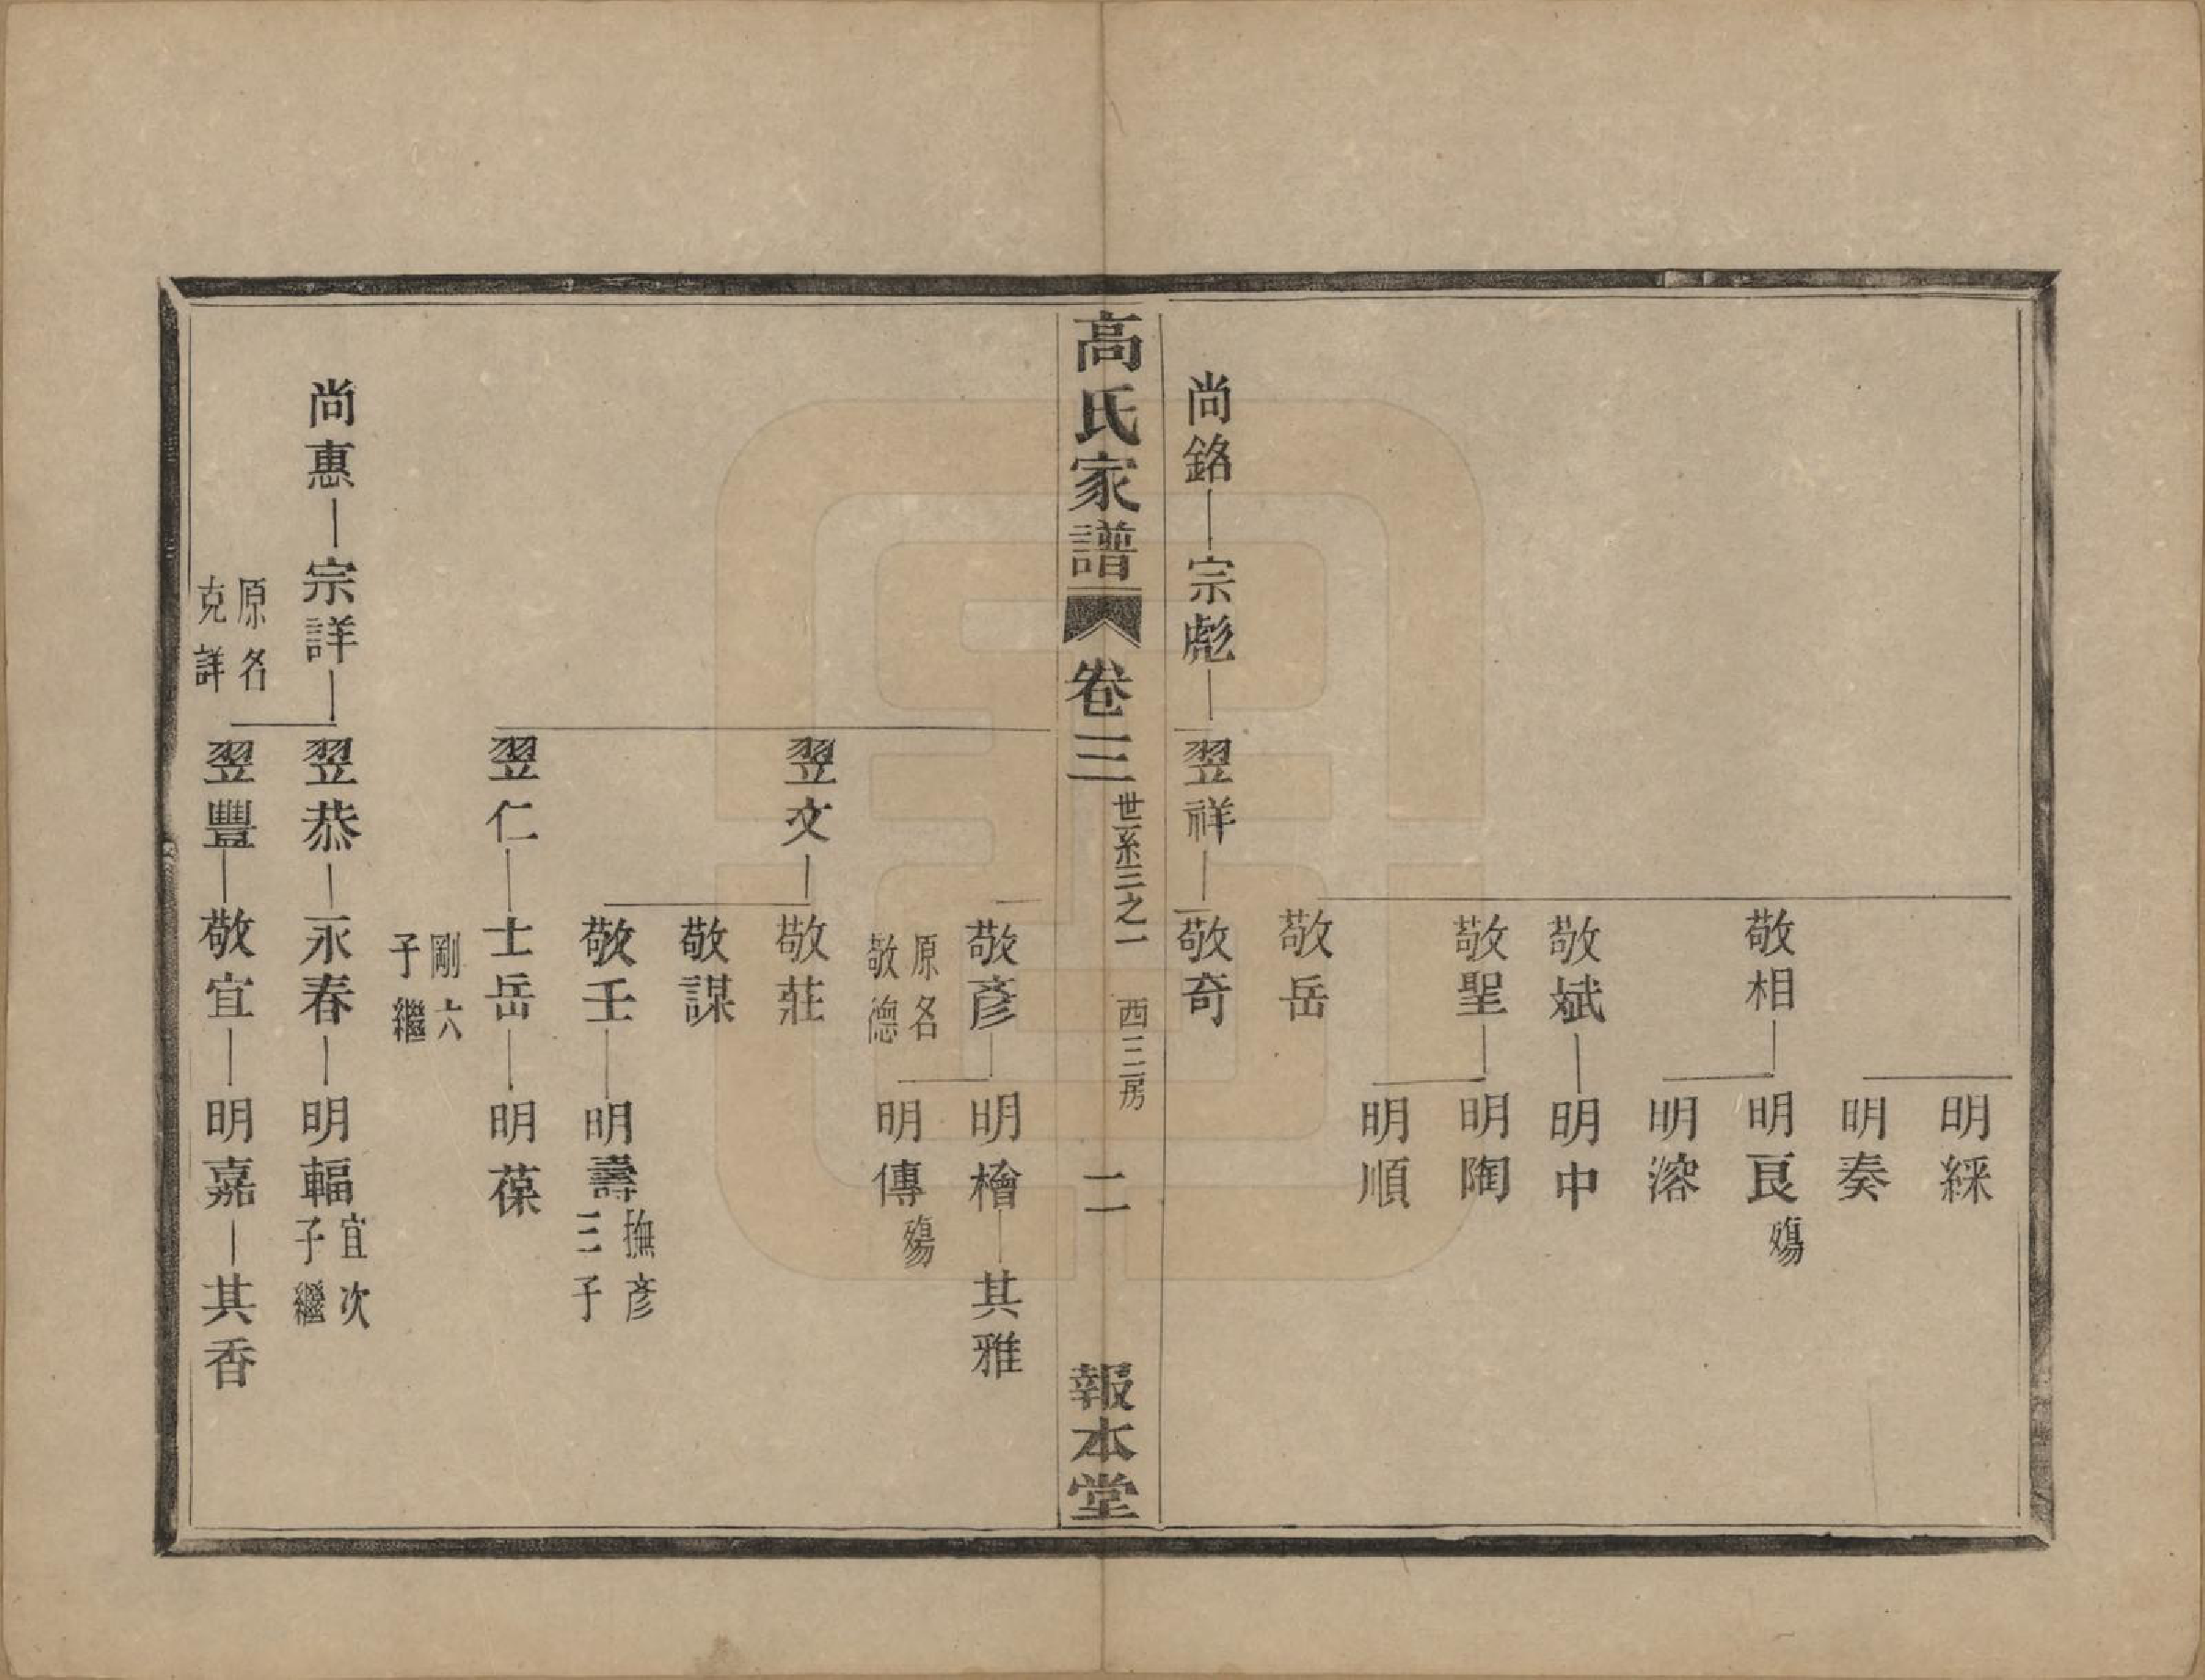 明綵
明奏
敬相 明良 殤
明溶
敬斌 明中
敬聖 明陶
明順
敬岳
尚銘 宗彪 翌祥 敬奇
高氏家譜 卷三 世系三之一 西三房 二 報本堂
敬彥 明檜 其雅
原名
敬德
明傳 殤
翌文 敬莊
敬謀
敬壬 明壽 撫彥
三子
翌仁 士岳 明葆
剛六
子繼
尚惠 宗詳 翌恭 永春 明輻 宜次
子繼
原名
克詳
翌豐 敬宜 明嘉 其香